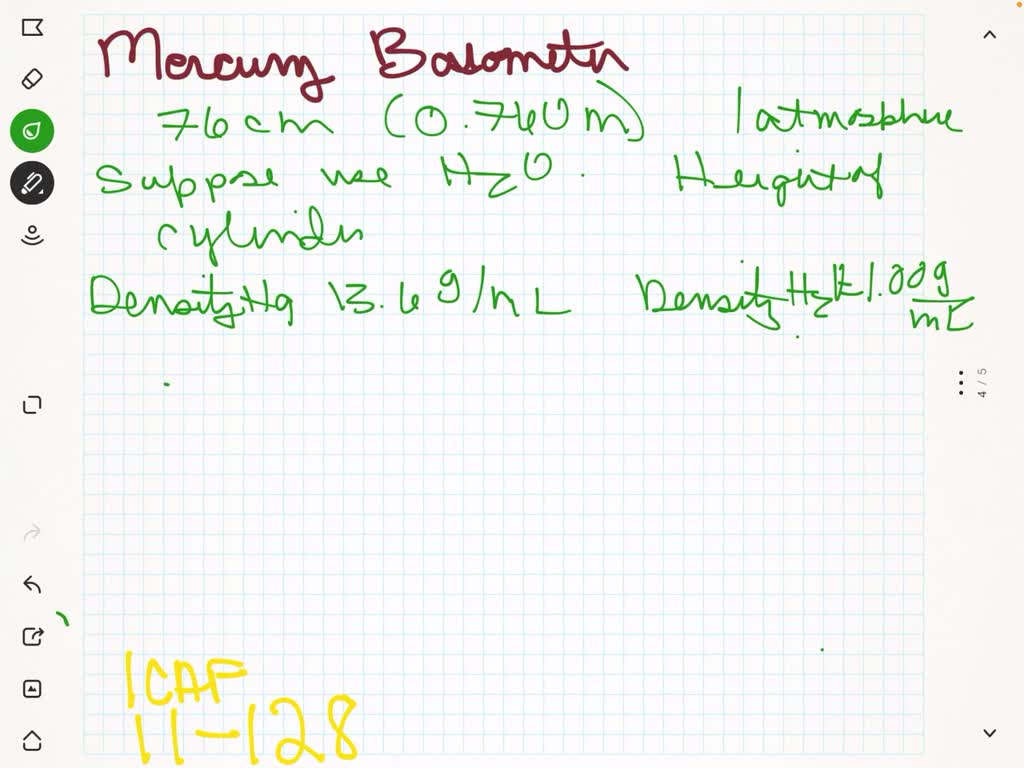 Mercury Barometer
76 cm (0.760 m) 1 atmosphere
Suppose use H2O. Height of
cylinder
Density Hg 13.6 g/mL Density H2O 1.00 g/mL
4/5
ICAF
11-128